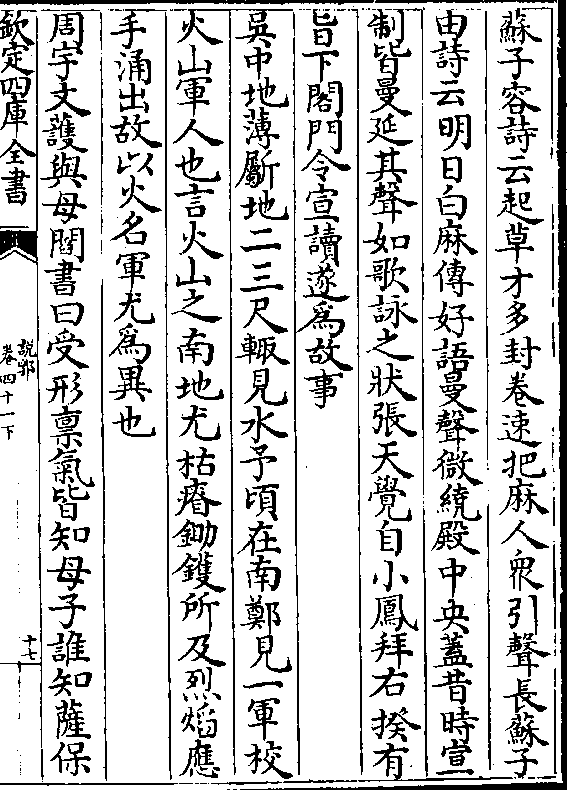 蘇子容詩云起草才多封卷速把麻人衆引聲長蘇子
由詩云明日白麻傳好語曼聲微繞殿中央蓋昔時宣
制皆曼延其聲如歌詠之狀張天覺自小鳳拜右揆有
旨下閤門令宣讀遂為故事
吳中地薄斸地二三尺輙見水予頃在南鄭見一軍校
火山軍人也言火山之南地尤枯瘠鋤钁所及烈熖應
手涌出故以火名軍尤為異也
周宇文護與母閻書曰受形禀氣皆知母子誰知薩保
欽定四庫全書
説郛
卷四十一下
十七